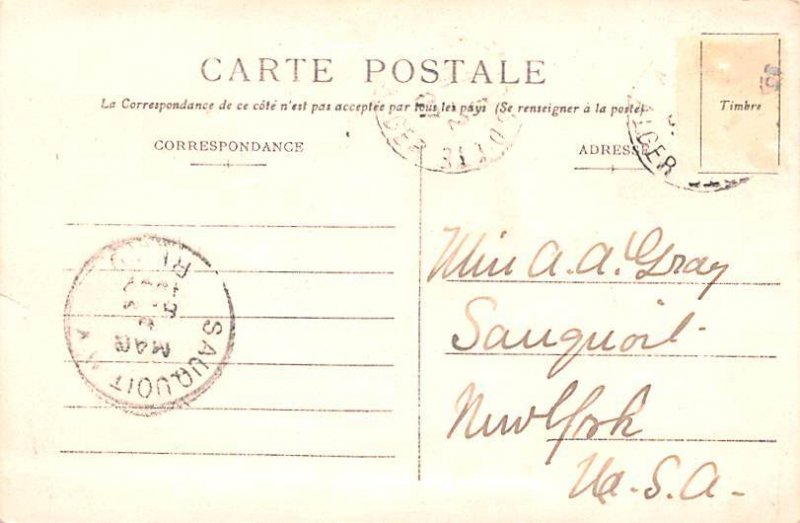 CARTE POSTALE
La Correspondance de ce côté n'est pas acceptée par tous les pays (Se renseigner à la poste)
CORRESPONDANCE
ADRESSE
Timbre
ALGER
Miss A. A. Gray
Sauquoit
New York
U. S. A.
SAUQUOIT N.Y.
MAR
REC'D